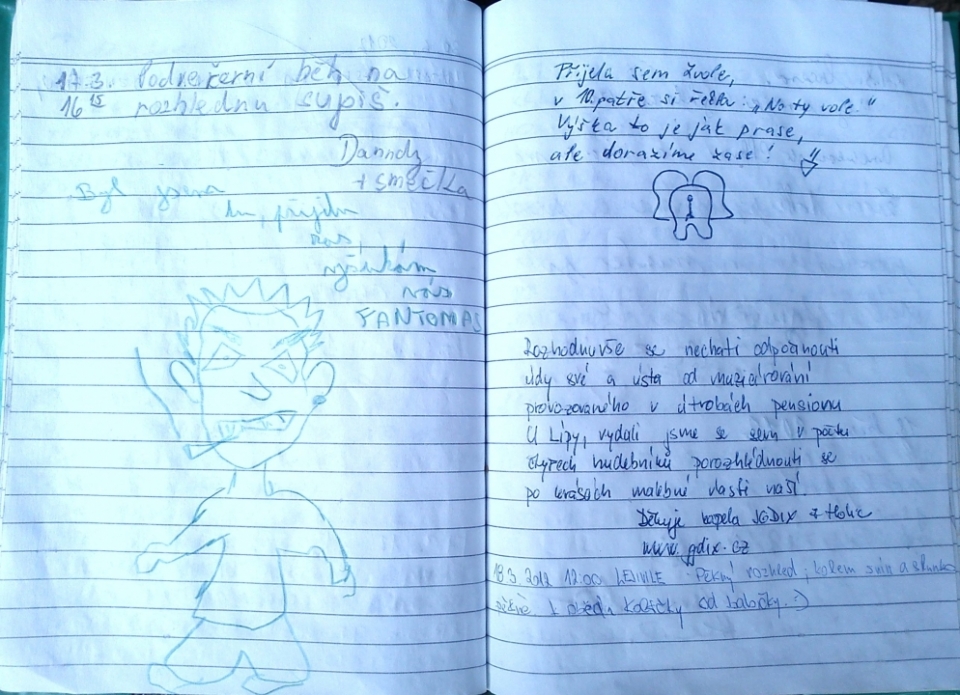 17.3. Podvečerní běh na
16 15 rozhlednu supiš.
Danndy
+ smečka
Byl jsem
tu, přijdu
zas,
vás
FANTOMAS
Přijela sem Zvole,
v 10. patře si řekla: „No ty vole."
Výška to je jak prase,
ale dorazíme zase!
Rozhodnuvše se nechati odpočnouti
údy své a ústa od muzicírování
provozovaného v útrobách pensionu
U Lípy, vydali jsme se sem v počtu
čtyřech hudebníků porozhlédnouti se
po krásách malebné vlasti naší.
Děkuje kapela JGDIX z
www.gdix.cz
18.3. 2012 12:00 Pěkný rozhled, kolem sníh a slunko
k obědu koláčky od babičky. :)